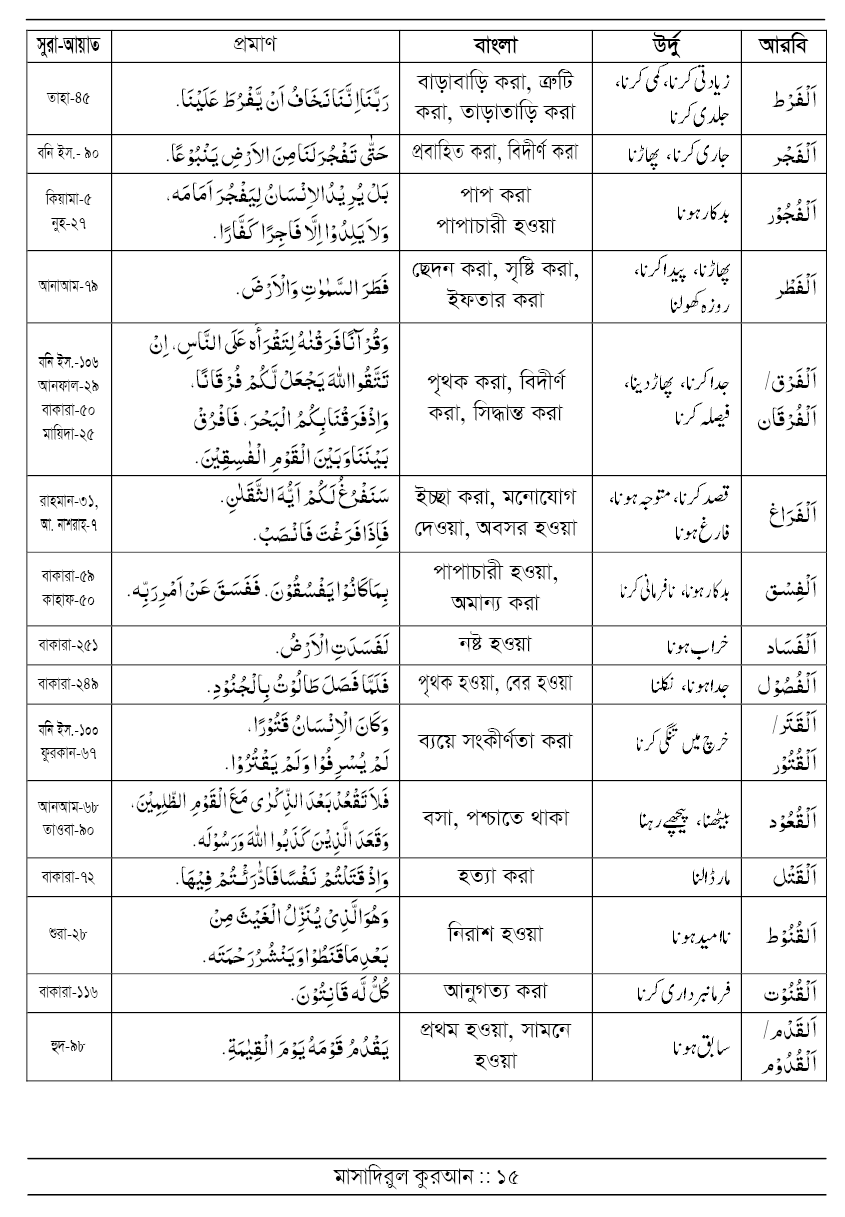 সুরা-আয়াত প্রমাণ বাংলা উর্দু আরবি
তাহা-৪৫ رَبَّنَا اِنَّنَا نَخَافُ اَنْ يَّفْرُطَ عَلَيْنَا. বাড়াবাড়ি করা, ত্রুটি زیادتی کرنا، کمی کرنا، اَلْفَرْط
করা, তাড়াতাড়ি করা جلدی کرنا
বনি ইস.- ৯০ حَتّٰى تَفْجُرَ لَنَا مِنَ الاَرْضِ يَنْبُوْعًا. প্রবাহিত করা, বিদীর্ণ করা جاری کرنا، پھاڑنا اَلْفَجْر
কিয়ামা-৫ بَلْ يُرِيْدُ الاِنْسَانُ لِيَفْجُرَ اَمَامَه، পাপ করা بدکار ہونا اَلْفُجُوْر
নুহ-২৭ وَلاَ يَلِدُوْا اِلَّا فَاجِرًا كَفَّارًا. পাপাচারী হওয়া
আনাআম-৭৯ فَطَرَ السَّمٰوٰتِ وَالْاَرْضَ. ছেদন করা, সৃষ্টি করা, پھاڑنا، پیدا کرنا، اَلْفَطْر
ইফতার করা روزہ کھولنا
বনি ইস.-১০৬ وَقُرْآنًا فَرَقْنٰهُ لِتَقْرَأَه عَلَى النَّاسِ، اِنْ
আনফাল-২৯ تَتَّقُوا اللهَ يَجْعَلْ لَّكُمْ فُرْقَانًا، পৃথক করা, বিদীর্ণ جدا کرنا، پھاڑ دینا، اَلْفَرْق/
বাকারা-৫০ وَاِذْ فَرَقْنَا بِكُمُ الْبَحْرَ، فَافْرُقْ করা, সিদ্ধান্ত করা فیصلہ کرنا اَلْفُرْقَان
মায়িদা-২৫ بَيْنَنَا وَبَيْنَ الْقَوْمِ الْفٰسِقِيْنَ.
রাহমান-৩১, سَنَفْرُغُ لَكُمْ اَيُّهَ الثَّقَلٰنِ. ইচ্ছা করা, মনোযোগ قصد کرنا، متوجہ ہونا، اَلْفَرَاغ
আ. নাশরাহ-৭ فَاِذَا فَرَغْتَ فَانْصَبْ. দেওয়া, অবসর হওয়া فارغ ہونا
বাকারা-৫৯ بِمَا كَانُوْا يَفْسُقُوْنَ. فَفَسَقَ عَنْ اَمْرِ رَبِّه. পাপাচারী হওয়া, بدکار ہونا، نافرمانی کرنا اَلْفِسْق
কাহাফ-৫০ অমান্য করা
বাকারা-২৫১ لَفَسَدَتِ الْاَرْضُ. নষ্ট হওয়া خراب ہونا اَلْفَسَاد
বাকারা-২৪৯ فَلَمَّا فَصَلَ طَالُوْتُ بِالْجُنُوْدِ. পৃথক হওয়া, বের হওয়া جدا ہونا، نکلنا اَلْفُصُوْل
বনি ইস.-১০০ وَكَانَ الْاِنْسَانُ قَتُوْرًا، ব্যয়ে সংকীর্ণতা করা خرچ میں تنگی کرنا اَلْقَتَر/
ফুরকান-৬৭ لَمْ يُسْرِفُوْا وَلَمْ يَقْتُرُوْا. اَلْقُتُوْر
আনআম-৬৮ فَلاَ تَقْعُدْ بَعْدَ الذِّكْرٰى مَعَ الْقَوْمِ الظّٰلِمِيْنَ، বসা, পশ্চাতে থাকা بیٹھنا، پیچھے رہنا اَلْقُعُوْد
তাওবা-৯০ وَقَعَدَ الَّذِيْنَ كَذَبُوا اللهَ وَرَسُوْلَه.
বাকারা-৭২ وَاِذْ قَتَلْتُمْ نَفْسًا فَادّٰرَئْتُمْ فِيْهَا. হত্যা করা مار ڈالنا اَلْقَتْل
শুরা-২৮ وَهُوَ الَّذِيْ يُنَزِّلُ الْغَيْثَ مِنْ নিরাশ হওয়া ناامید ہونا اَلْقُنُوْط
بَعْدِ مَا قَنَطُوْا وَيَنْشُرُ رَحْمَتَه.
বাকারা-১১৬ كُلٌّ لَّه قَانِتُوْنَ. আনুগত্য করা فرمانبرداری کرنا اَلْقُنُوْت
হুদ-৯৮ يَقْدُمُ قَوْمَهُ يَوْمَ الْقِيٰمَةِ. প্রথম হওয়া, সামনে سابق ہونا اَلْقَدْم/
হওয়া اَلْقُدُوْم
মাসাদিরুল কুরআন :: ১৫